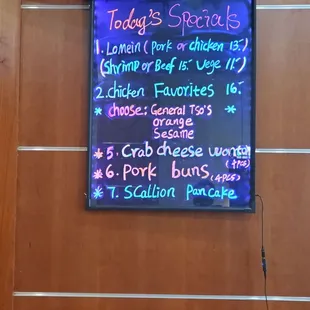 Today's Specials
1. Lomein (Pork or chicken 13.-)
(Shrimp or Beef 15.- Vege 11.-)
2. Chicken Favorites 16.-
* choose: General Tso's *
orange
Sesame
* 5. Crab cheese wonton
* 6. Pork buns (4PCS)
* 7. Scallion pancake